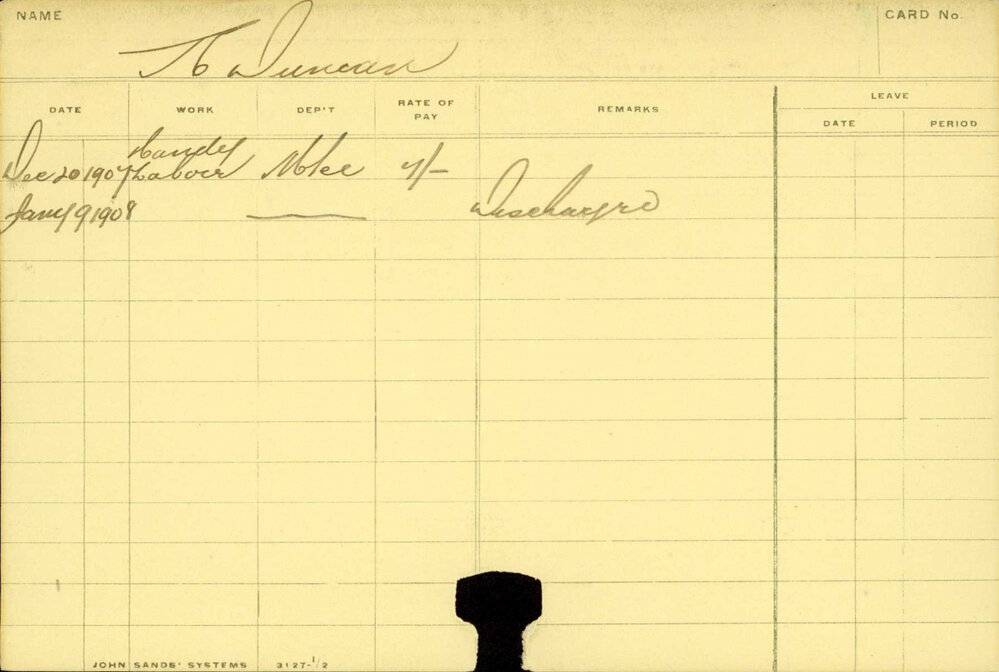 NAME
CARD No.
Duncan
DATE WORK DEP'T RATE OF PAY REMARKS LEAVE
DATE PERIOD
Handy
Dec 20 1907 Labour 7/-
Jany 9 1908 Discharged
JOHN SANDS' SYSTEMS 3127-1/2